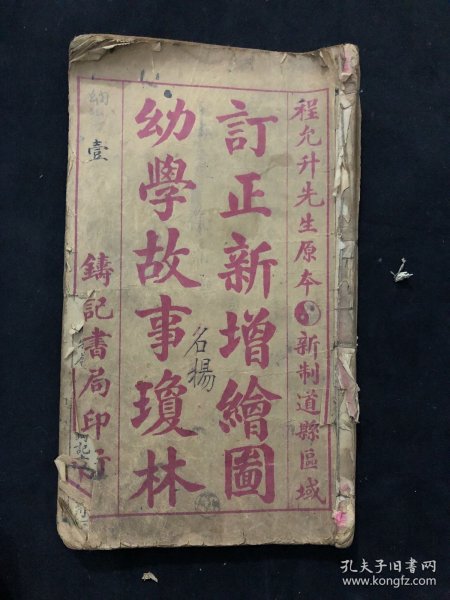 程允升先生原本 新制道縣區域
訂正新增繪圖
幼學故事瓊林
鑄記書局印行
名揚
壹
孔夫子旧书网
www.kongfz.com